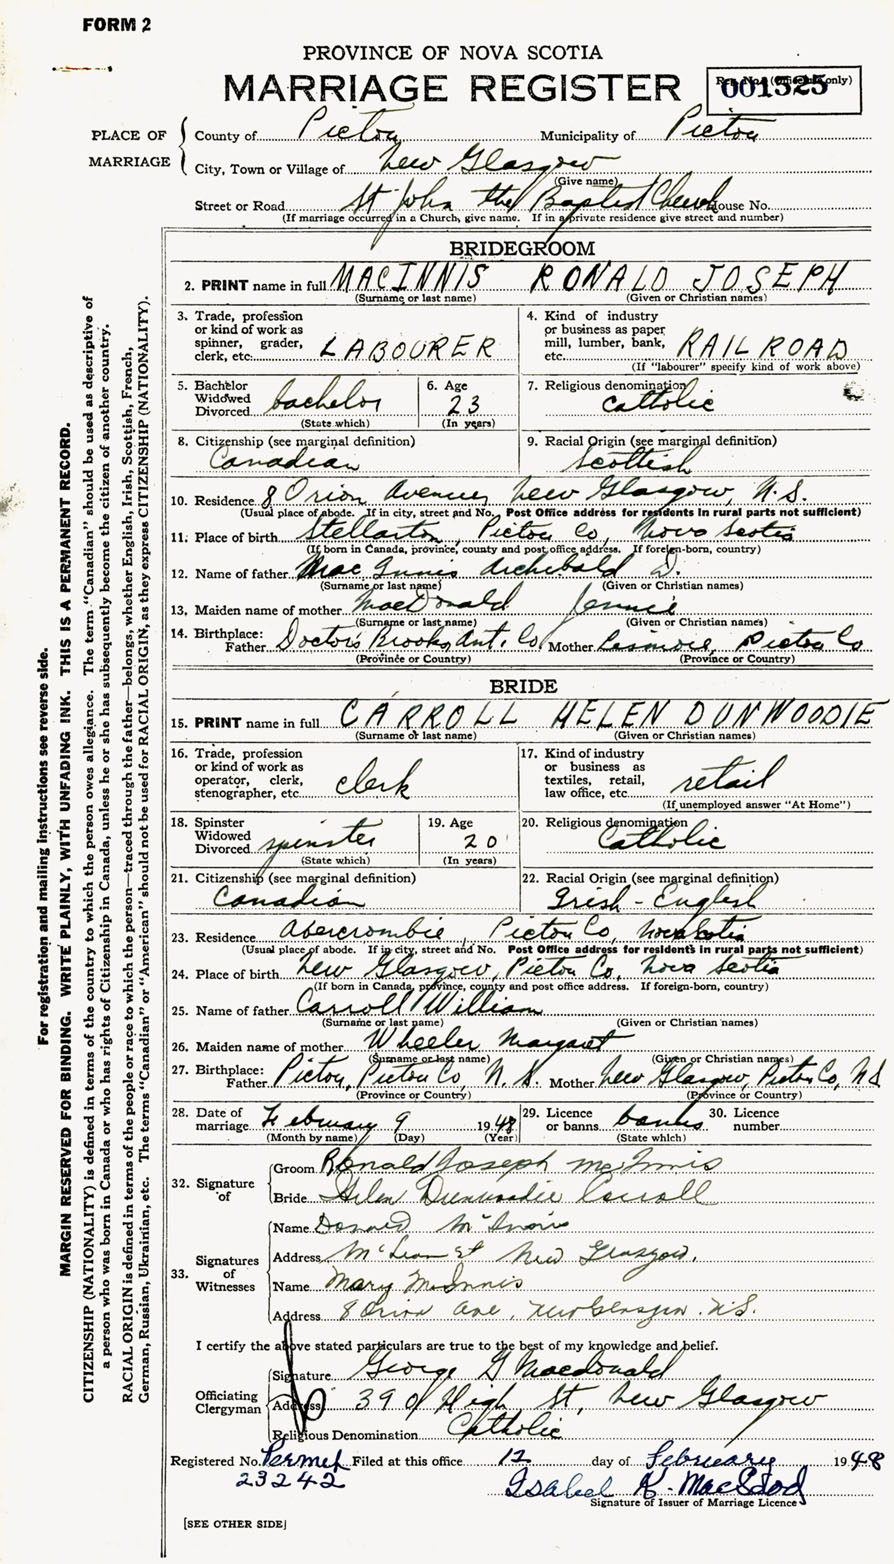 FORM 2
PROVINCE OF NOVA SCOTIA
MARRIAGE REGISTER
Reg. No. (Office use only)
001525
PLACE OF MARRIAGE
County of Pictou Municipality of Pictou
City, Town or Village of New Glasgow
(Give name)
Street or Road St John the Baptist Church House No.
(If marriage occurred in a Church, give name. If in a private residence give street and number)
BRIDEGROOM
2. PRINT name in full MACINNIS RONALD JOSEPH
(Surname or last name) (Given or Christian names)
3. Trade, profession or kind of work as spinner, grader, clerk, etc. LABOURER
4. Kind of industry or business as paper, mill, lumber, bank, etc. RAILROAD
(If "labourer" specify kind of work above)
5. Bachelor Widowed Divorced bachelor
(State which)
6. Age 23
(In years)
7. Religious denomination Catholic
8. Citizenship (see marginal definition) Canadian
9. Racial Origin (see marginal definition) Scottish
10. Residence 8 Orion Avenue, New Glasgow, N.S.
(Usual place of abode. If in city, street and No. Post Office address for residents in rural parts not sufficient)
11. Place of birth Stellarton, Pictou Co, Nova Scotia
(If born in Canada, province, county and post office address. If foreign-born, country)
12. Name of father MacInnis Archibald D.
(Surname or last name) (Given or Christian names)
13. Maiden name of mother MacDonald Jennie
(Surname or last name) (Given or Christian names)
14. Birthplace: Father Doctors Brook, Ant. Co. Mother Lismore, Pictou Co
(Province or Country) (Province or Country)
BRIDE
15. PRINT name in full CARROLL HELEN DUNWOODIE
(Surname or last name) (Given or Christian names)
16. Trade, profession or kind of work as operator, clerk, stenographer, etc. clerk
17. Kind of industry or business as textiles, retail, law office, etc. retail
(If unemployed answer "At Home")
18. Spinster Widowed Divorced spinster
(State which)
19. Age 20
(In years)
20. Religious denomination Catholic
21. Citizenship (see marginal definition) Canadian
22. Racial Origin (see marginal definition) Irish - English
23. Residence Abercrombie, Pictou Co, Nova Scotia
(Usual place of abode. If in city, street and No. Post Office address for residents in rural parts not sufficient)
24. Place of birth New Glasgow, Pictou Co, Nova Scotia
(If born in Canada, province, county and post office address. If foreign-born, country)
25. Name of father Carroll William
(Surname or last name) (Given or Christian names)
26. Maiden name of mother Wheeler Margaret
(Surname or last name) (Given or Christian names)
27. Birthplace: Father Pictou, Pictou Co, N.S. Mother New Glasgow, Pictou Co, NS
(Province or Country) (Province or Country)
28. Date of marriage February 9 1948
(Month by name) (Day) (Year)
29. Licence or banns banns
(State which)
30. Licence number
32. Signature of
Groom Ronald Joseph McInnis
Bride Helen Dunwoodie Carroll
33. Signatures of Witnesses
Name Donald McInnis
Address McLean St New Glasgow.
Name Mary McInnis
Address 8 Orion Ave. New Glasgow. N.S.
I certify the above stated particulars are true to the best of my knowledge and belief.
Officiating Clergyman
Signature George G Macdonald
Address 390 High St, New Glasgow
Religious Denomination Catholic
Registered No. Permit Filed at this office 12 day of February 1948
23242
Isabel K. MacLeod
Signature of Issuer of Marriage Licence
[SEE OTHER SIDE]
For registration and mailing instructions see reverse side.
MARGIN RESERVED FOR BINDING. WRITE PLAINLY, WITH UNFADING INK. THIS IS A PERMANENT RECORD.
CITIZENSHIP (NATIONALITY) is defined in terms of the country to which the person owes allegiance. The term "Canadian" should be used as descriptive of
a person who was born in Canada or who has rights of Citizenship in Canada, unless he or she has subsequently become the citizen of another country.
RACIAL ORIGIN is defined in terms of the people or race to which the person—traced through the father—belongs, whether English, Irish, Scottish, French,
German, Russian, Ukrainian, etc. The terms "Canadian" or "American" should not be used for RACIAL ORIGIN, as they express CITIZENSHIP (NATIONALITY).